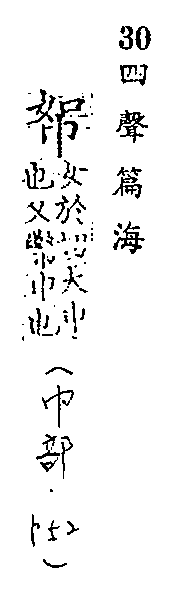 30 四聲篇海
帤
女於切大巾
也又巾也
(巾部.P52)